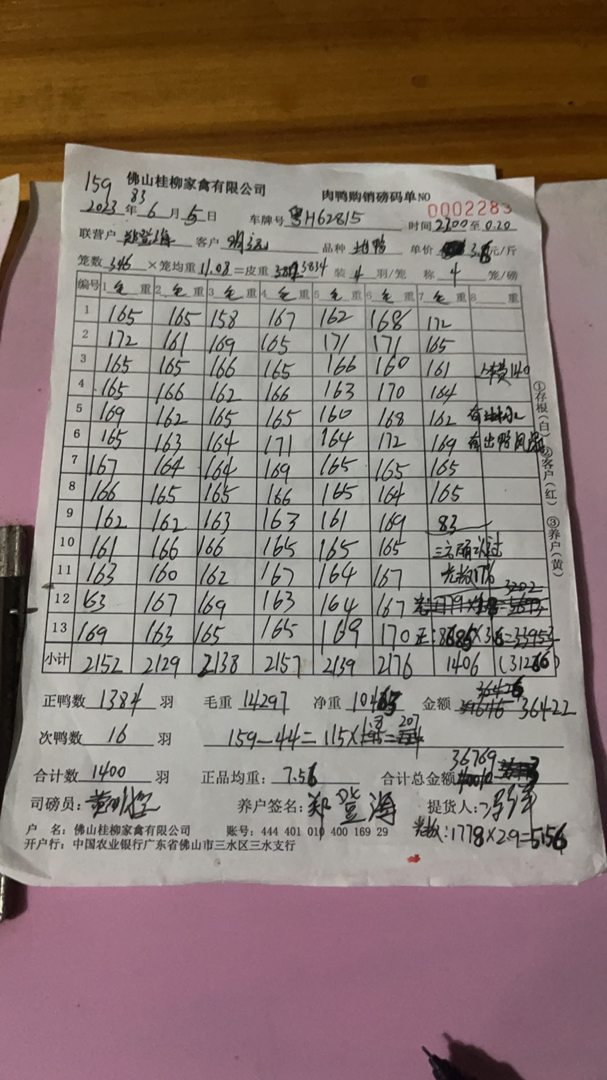 159 佛山桂柳家禽有限公司 肉鸭购销磅码单 NO 0002283
83
2023年6月5日 车牌号 粤H62815 时间 2300至0.20
联营户 郑登海 客户 品种 单价 元/斤
笼数 346 ×笼均重 11.08 =皮重 3834 装 4 羽/笼 称 4 笼/磅
编号 1 毛 重 2 毛 重 3 毛 重 4 毛 重 5 毛 重 6 毛 重 7 毛 重 8 重
1 165 165 158 167 162 168 172
2 172 161 169 165 171 171 165
3 165 165 166 165 166 160 161
4 165 166 162 166 163 170 164
5 169 162 165 165 160 168 162
6 165 163 164 171 164 172 169
7 167 164 164 169 165 165 165
8 166 165 165 166 165 164 165
9 162 162 163 163 161 169 83
10 161 166 166 165 165 165
11 163 160 162 167 164 167
3202
12 63 167 169 163 164 167
13 169 163 165 165 169 170
小计 2152 2129 2138 2157 2139 2176 1406
①存根(白)②客户(红)③养户(黄)
36426
正鸭数 1384 羽 毛重 14297 净重 金额 36422
次鸭数 16 羽 159-44=115×
207
36769
合计数 1400 羽 正品均重: 7.56 合计总金额
司磅员: 养户签名: 郑登海 提货人:
户 名: 佛山桂柳家禽有限公司 账号: 444 401 010 400 169 29
1778×2.9=5156
开户行: 中国农业银行广东省佛山市三水区三水支行